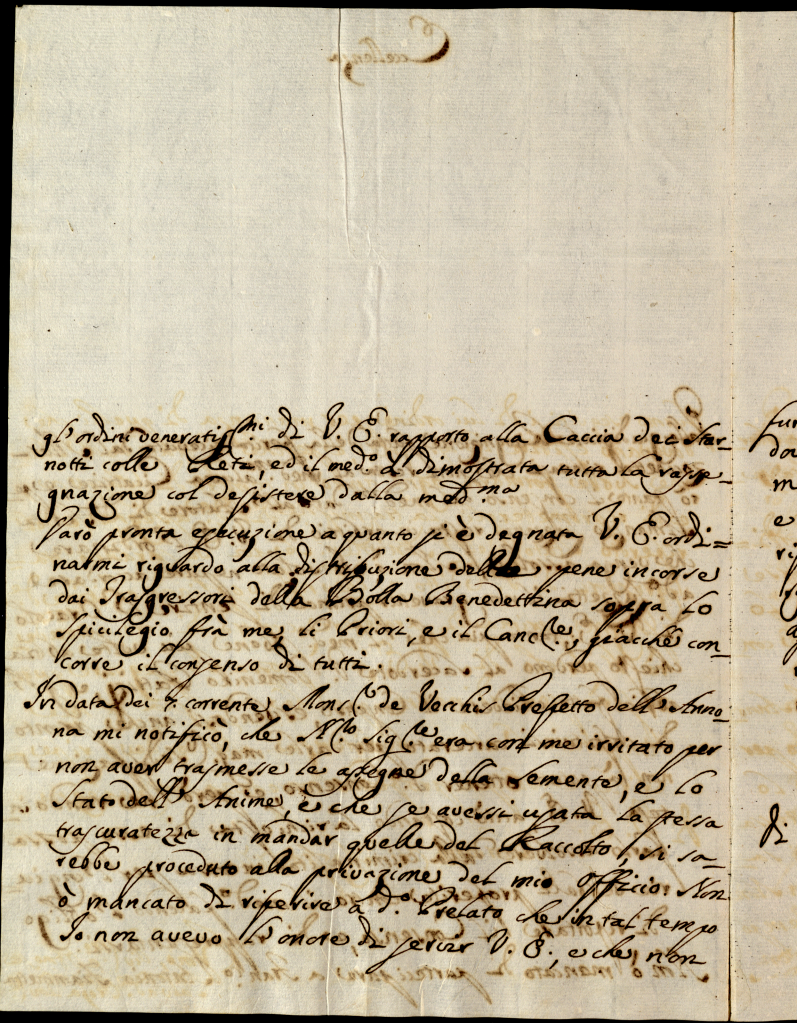 gl'ordini veneratiss.mi di V. E. rapporto alla Caccia dei Star-
notti colle Reti, ed il med.o à dimostrata tutta la rasse-
gnazione col desistere dalla med.ma
Darò pronta esecuzione a quanto si è degnata V. E. ordi=
narmi riguardo alla distribuzione delle pene incorse
dai Trasgressori della Bolla Benedettina sopra lo
Spicilegio frà me, li Priori, e il Canc.re, giacchè con-
corre il consenso di tutti.
In data dei 7. corrente Mons.r de Vecchis Prefetto dell'Anno-
na mi notificò, che era con me irritato per
non aver trasmesse le assegne della Semente, e lo
Stato dell'Anime, e che se avessi usata la stessa
trascuratezza in mandar quelle del Raccolto, si sa-
rebbe proceduto alla privazione del mio Officio. Non
ò mancato di riferire a d.o Prelato che in tal tempo
Io non avevo l'onore di servir V. E., e che non
di